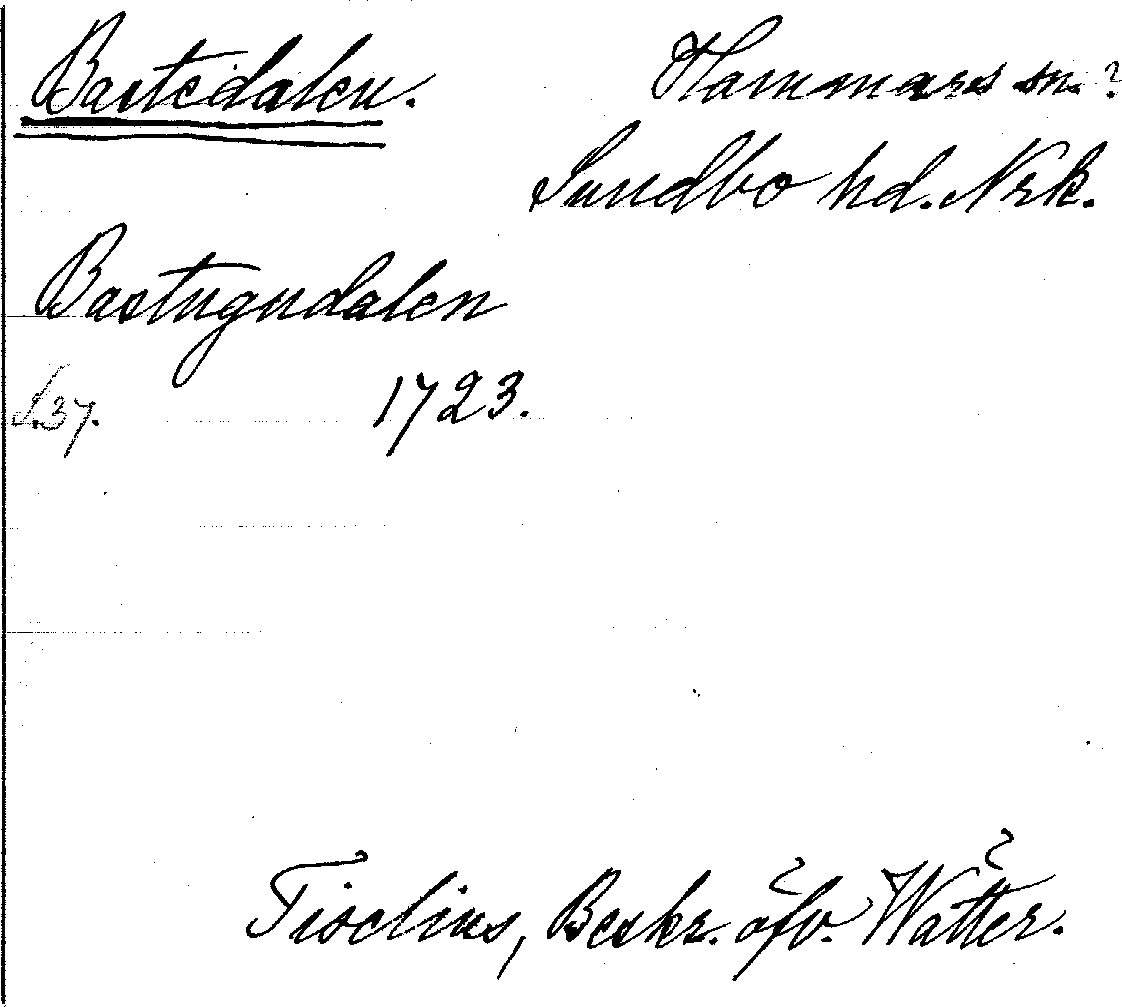 Bastedalen.
Hammars sn.?
Sundbo hd. Nrk.
Bastugudalen
S.37. 1723.
Tiselius, Beskr. öfv. Wätter.